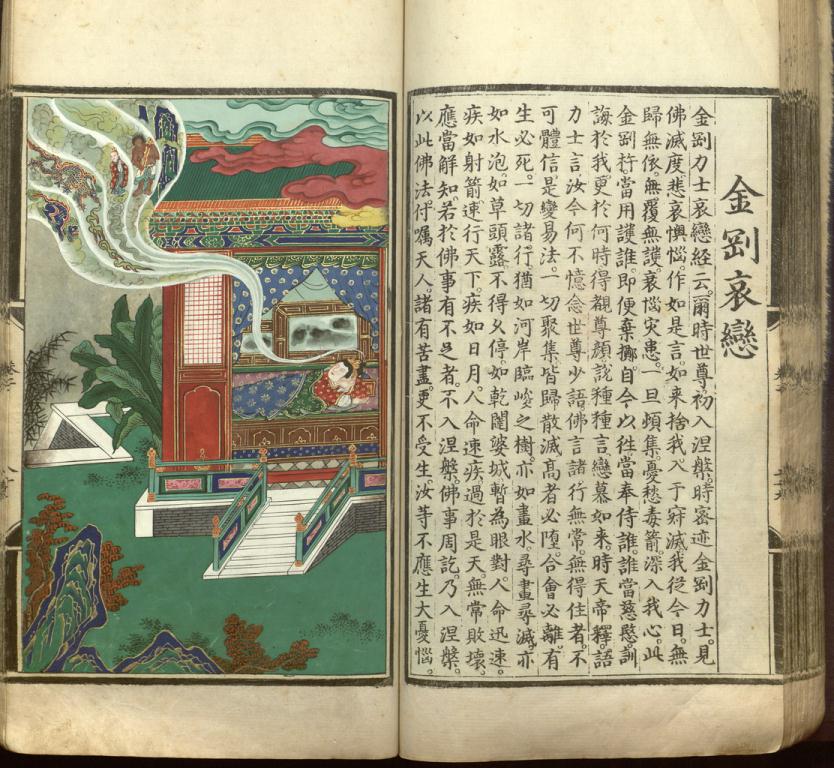 金剛哀戀
金剛力士哀戀経云。爾時世尊初入涅槃。時密迹金剛力士。見
佛滅度悲哀懊惱。作如是言如来捨我入于寂滅我從今日。無
歸無依。無覆無護。衰惱灾患。一旦頓集。憂愁毒箭。深入我心。此
金剛杵。當用護誰。即便棄擲自今以往。當奉侍誰。誰當慈愍。訓
誨於我更於何時得覩尊顔說種種言。戀慕如来。時天帝釋。語
力士言汝今何不憶念世尊少語佛言諸行無常。無得住者。不
可體信是變易法。一切聚集皆歸散滅高者必墮。合會必離。有
生必死。一切諸行猶如河岸臨峻之樹亦如畫水。尋畫尋滅。亦
如水泡。如草頭露。不得久停。如乾闥婆城暫為眼對。人命迅速。
疾如射箭。速行天下。疾如日月。人命速疾過於是天。無常敗壞。
應當解知。若於佛事有不足者。不入涅槃。佛事周訖。乃入涅槃。
以此佛法付囑天人。諸有苦盡。更不受生。汝等不應生大憂惱。